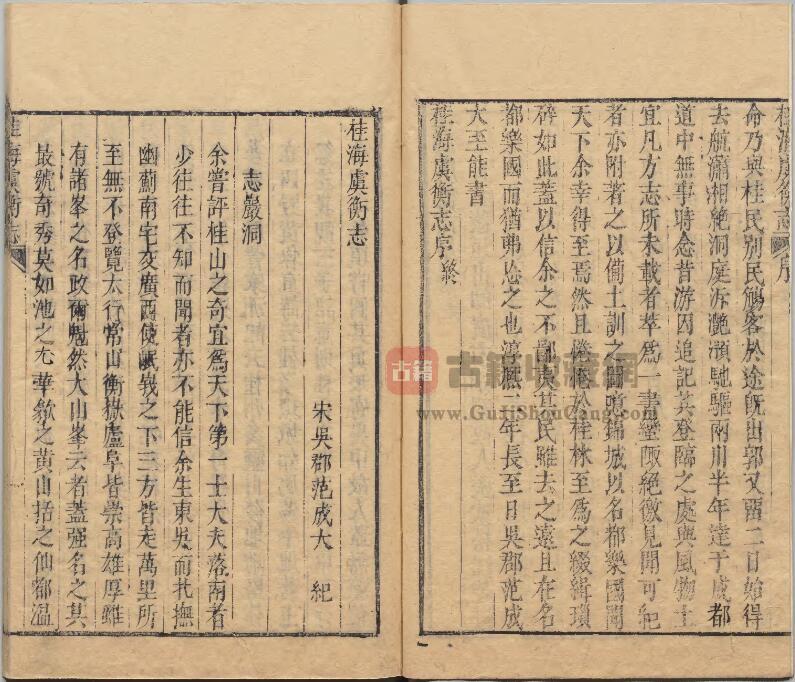 桂海虞衡志 序
命乃與桂民別民觴客於途旣出郭又留二日始得
去航瀟湘絕洞庭泝灩澦馳驅兩川半年達于成都
道中無事時念昔游因追記其登臨之處與風物土
宜凡方志所未載者萃爲一書蠻陬絕徼見聞可紀
者亦附著之以備土訓之圖噫錦城以名都樂國聞
天下余幸得至焉然且惓惓於桂林至爲之綴緝瑣
碎如此蓋以信余之不鄙夷其民雖去之遠且在名
都樂國而猶弗忘之也淳熙二年長至日吳郡范成
大至能書
桂海虞衡志序終
桂海虞衡志
宋吳郡范成大 紀
志巖洞
余嘗評桂山之奇宜爲天下第一士大夫落南者
少往往不知而聞者亦不能信余生東吳而北撫
幽薊南宅交廣西使岷峩之下三方皆走萬里所
至無不登覽太行常山衡嶽廬阜皆崇高雄厚雖
有諸峯之名政爾魁然大山峯云者蓋强名之其
最號奇秀莫如池之九華歙之黃山括之仙都溫
桂海虞衡志
古籍
古籍收藏網
www.GujiShouCang.com